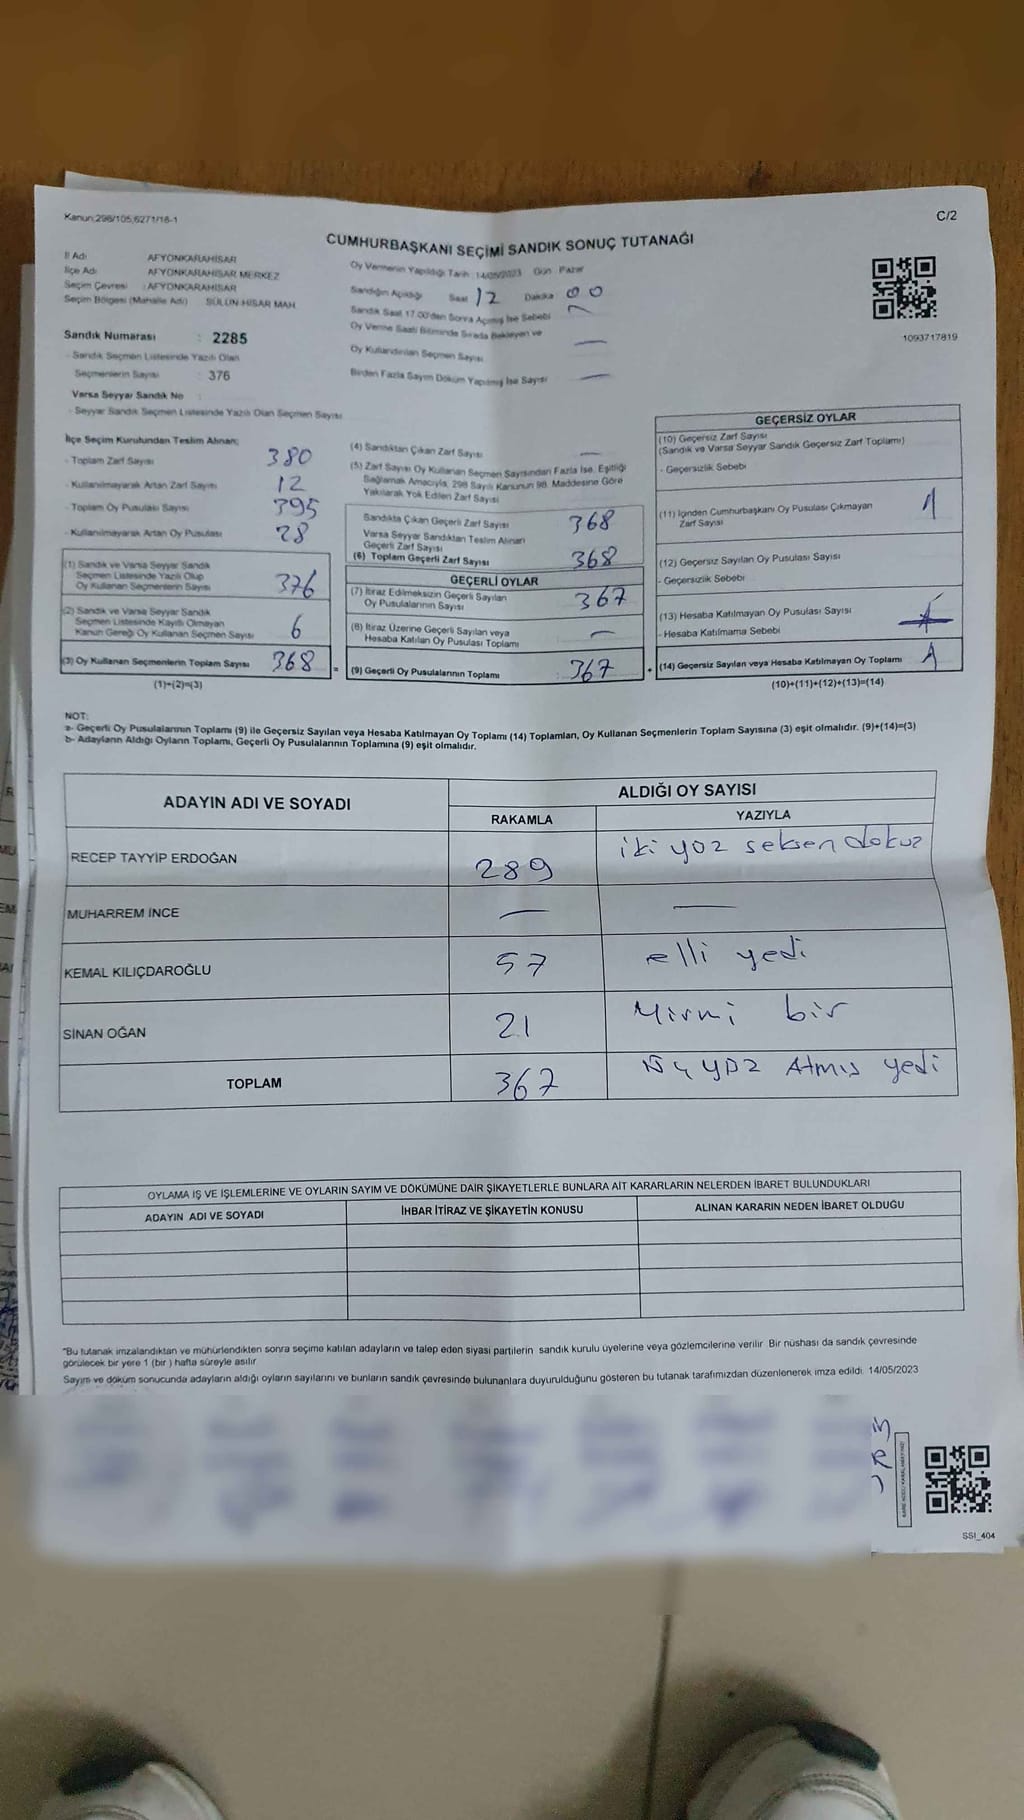 Kanun:298/105,6271/16-1
C/2
CUMHURBAŞKANI SEÇİMİ SANDIK SONUÇ TUTANAĞI
İl Adı AFYONKARAHİSAR
İlçe Adı AFYONKARAHİSAR MERKEZ
Seçim Çevresi : AFYONKARAHİSAR
Seçim Bölgesi (Mahalle Adı) SÜLÜN-HİSAR MAH.
Sandık Numarası : 2285
- Sandık Seçmen Listesinde Yazılı Olan
Seçmenlerin Sayısı : 376
Varsa Seyyar Sandık No :
- Seyyar Sandık Seçmen Listesinde Yazılı Olan Seçmen Sayısı
Oy Vermenin Yapıldığı Tarih : 14/05/2023 Gün : Pazar
Sandığın Açıldığı Saat 12 Dakika 00
Sandık Saat 17.00'den Sonra Açılmış İse Sebebi
Oy Verme Saati Bitiminde Sırada Bekleyen ve
Oy Kullandırılan Seçmen Sayısı —
Birden Fazla Sayım Döküm Yapılmış İse Sayısı —
1093717819
İlçe Seçim Kurulundan Teslim Alınan;
- Toplam Zarf Sayısı 380
- Kullanılmayarak Artan Zarf Sayısı 12
- Toplam Oy Pusulası Sayısı 395
- Kullanılmayarak Artan Oy Pusulası 28
(1) Sandık ve Varsa Seyyar Sandık
Seçmen Listesinde Yazılı Olup
Oy Kullanan Seçmenlerin Sayısı 376
(2) Sandık ve Varsa Seyyar Sandık
Seçmen Listesinde Kayıtlı Olmayan
Kanun Gereği Oy Kullanan Seçmen Sayısı 6
(3) Oy Kullanan Seçmenlerin Toplam Sayısı 368 =
(1)+(2)=(3)
(4) Sandıktan Çıkan Zarf Sayısı —
(5) Zarf Sayısı Oy Kullanan Seçmen Sayısından Fazla İse, Eşitliği
Sağlamak Amacıyla, 298 Sayılı Kanunun 98. Maddesine Göre
Yakılarak Yok Edilen Zarf Sayısı
Sandıkta Çıkan Geçerli Zarf Sayısı 368
Varsa Seyyar Sandıktan Teslim Alınan
Geçerli Zarf Sayısı
(6) Toplam Geçerli Zarf Sayısı 368
GEÇERLİ OYLAR
(7) İtiraz Edilmeksizin Geçerli Sayılan
Oy Pusulalarının Sayısı 367
(8) İtiraz Üzerine Geçerli Sayılan veya
Hesaba Katılan Oy Pusulası Toplamı —
(9) Geçerli Oy Pusulalarının Toplamı 367 +
GEÇERSİZ OYLAR
(10) Geçersiz Zarf Sayısı
(Sandık ve Varsa Seyyar Sandık Geçersiz Zarf Toplamı)
- Geçersizlik Sebebi
(11) İçinden Cumhurbaşkanı Oy Pusulası Çıkmayan
Zarf Sayısı 1
(12) Geçersiz Sayılan Oy Pusulası Sayısı
- Geçersizlik Sebebi
(13) Hesaba Katılmayan Oy Pusulası Sayısı
- Hesaba Katılmama Sebebi
(14) Geçersiz Sayılan veya Hesaba Katılmayan Oy Toplamı 1
(10)+(11)+(12)+(13)=(14)
NOT:
a- Geçerli Oy Pusulalarının Toplamı (9) ile Geçersiz Sayılan veya Hesaba Katılmayan Oy Toplamı (14) Toplamları, Oy Kullanan Seçmenlerin Toplam Sayısına (3) eşit olmalıdır. (9)+(14)=(3)
b- Adayların Aldığı Oyların Toplamı, Geçerli Oy Pusulalarının Toplamına (9) eşit olmalıdır.
ADAYIN ADI VE SOYADI ALDIĞI OY SAYISI
RAKAMLA YAZIYLA
RECEP TAYYİP ERDOĞAN 289 iki yüz seksen dokuz
MUHARREM İNCE — —
KEMAL KILIÇDAROĞLU 57 elli yedi
SİNAN OĞAN 21 Yirmi bir
TOPLAM 367 üç yüz Atmış yedi
OYLAMA İŞ VE İŞLEMLERİNE VE OYLARIN SAYIM VE DÖKÜMÜNE DAİR ŞİKAYETLERLE BUNLARA AİT KARARLARIN NELERDEN İBARET BULUNDUKLARI
ADAYIN ADI VE SOYADI İHBAR İTİRAZ VE ŞİKAYETİN KONUSU ALINAN KARARIN NEDEN İBARET OLDUĞU
"Bu tutanak imzalandıktan ve mühürlendikten sonra seçime katılan adayların ve talep eden siyasi partilerin sandık kurulu üyelerine veya gözlemcilerine verilir. Bir nüshası da sandık çevresinde
görülecek bir yere 1 (bir ) hafta süreyle asılır.
Sayım ve döküm sonucunda adayların aldığı oyların sayılarını ve bunların sandık çevresinde bulunanlara duyurulduğunu gösteren bu tutanak tarafımızdan düzenlenerek imza edildi. 14/05/2023
SSI_404